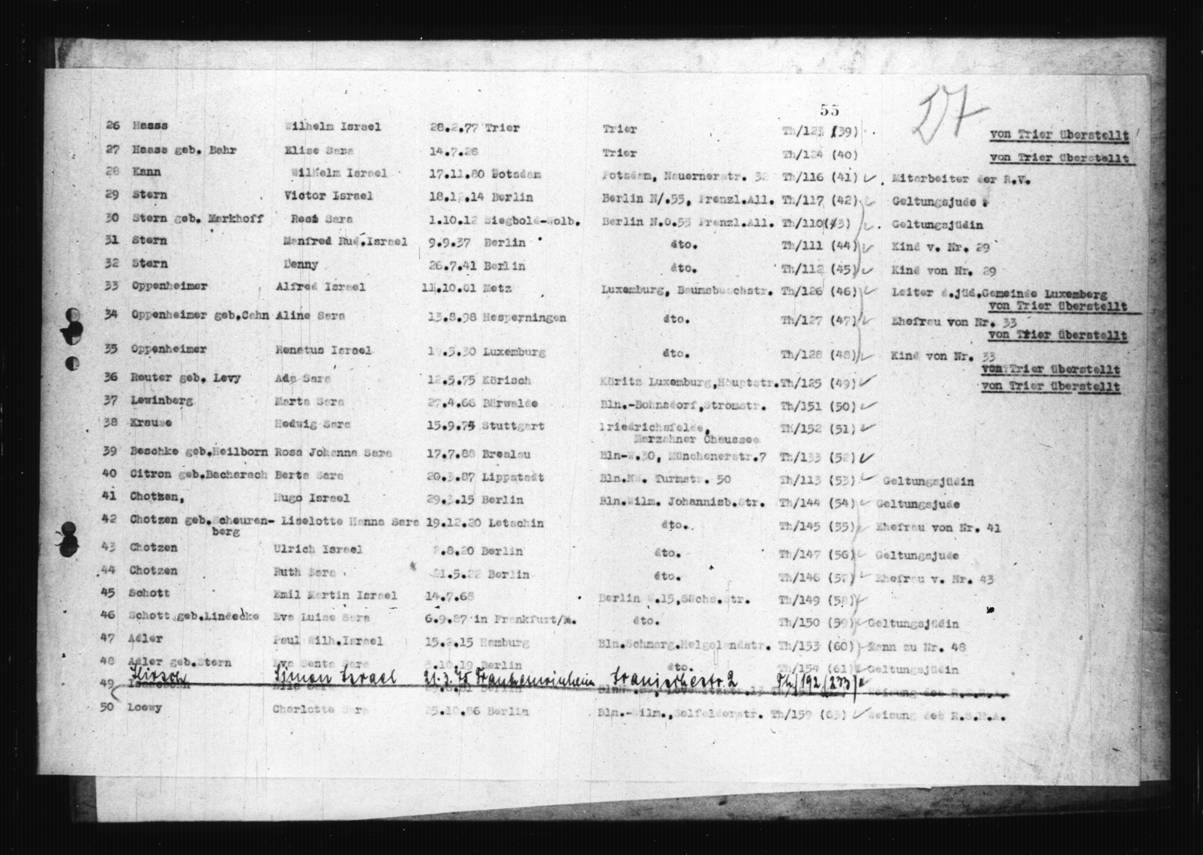 55
27
26 Haass Wilhelm Israel 28.2.77 Trier Trier Th/123 (39) von Trier überstellt
27 Haass geb. Bahr Elise Sara 14.7.26 Trier Th/124 (40) von Trier überstellt
28 Kann Wilhelm Israel 17.11.80 Potsdam Potsdam, Nauenerstr. 32 Th/116 (41) Mitarbeiter der R.V.
29 Stern Victor Israel 14 Berlin Berlin N/.55, Prenzl.All. Th/117 (42) Geltungsjude
30 Stern geb. Markhoff Rosi Sara 1.10.12 Siegbold-Kolb. Berlin N.O.55 Prenzl.All. Th/110 Geltungsjüdin
31 Stern Manfred Rud.Israel 9.9.37 Berlin dto. Th/111 (44) Kind v. Nr. 29
32 Stern Denny 26.7.41 Berlin dto. Th/112 (45) Kind von Nr. 29
33 Oppenheimer Alfred Israel 11.10.01 Metz Luxemburg, Th/126 (46) Leiter d.jüd.Gemeinde Luxemberg
von Trier überstellt
34 Oppenheimer geb.Cahn Aline Sara 13.8.98 Hesperningen dto. Th/127 (47) Ehefrau von Nr. 33
von Trier überstellt
35 Oppenheimer Renatus Israel 5.30 Luxemburg dto. Th/128 (48) Kind von Nr. 33
von Trier überstellt
36 Reuter geb. Levy Ada Sara 12.5.75 Körisch Köritz Luxemburg,Hauptstr. Th/125 (49) von Trier überstellt
37 Lewinberg Marta Sara 27.4.66 Bärwalde Bln.-Bohnsdorf,Stromstr. Th/151 (50)
38 Krause Hedwig Sara 15.9.75 Stuttgart Friedrichsfelde, Th/152 (51)
Marzahner Chaussee
39 Beschke geb.Heilborn Rosa Johanna Sara 17.7.88 Breslau Bln-W.30, Münchenerstr.7 Th/133 (52)
40 Citron geb.Bacharach Berta Sara 20.3.87 Lippstadt Bln.NW. Turmstr. 50 Th/113 (53) Geltungsjüdin
41 Chotzen, Hugo Israel 29.3.15 Berlin Bln.Wilm. Johannisb.Str. Th/144 (54) Geltungsjude
42 Chotzen geb.Scheuren- Liselotte Hanna Sara 19.12.20 Letschin dto. Th/145 (55) Ehefrau von Nr. 41
berg
43 Chotzen Ulrich Israel 8.20 Berlin dto. Th/147 (56) Geltungsjude
44 Chotzen Ruth Sara 5.22 Berlin dto. Th/146 (57) Ehefrau v. Nr. 43
45 Schott Emil Martin Israel 14.7.68 Berlin W.15,Sächs.Str. Th/149 (58)
46 Schott geb.Lindecke Eva Luise Sara 6.9.87 in Frankfurt/M. dto. Th/150 (59) Geltungsjüdin
47 Adler Paul Wilh.Israel 15.2.15 Hamburg Bln.Schmarg.Helgolandstr. Th/153 (60) Mann zu Nr. 48
48 Adler geb.Stern Eva Senta Sara 10.19 Berlin dto. Th/154 (61) Geltungsjüdin
49 Hirsch Simon Israel 21.3.75 Frankenwinheim Iranischestr. 2 Th/192 (233)
50 Loewy Charlotte Sara 25.10.86 Berlin Bln.-Wilm., Th/159 (63) Weisung des R.S.H.A.